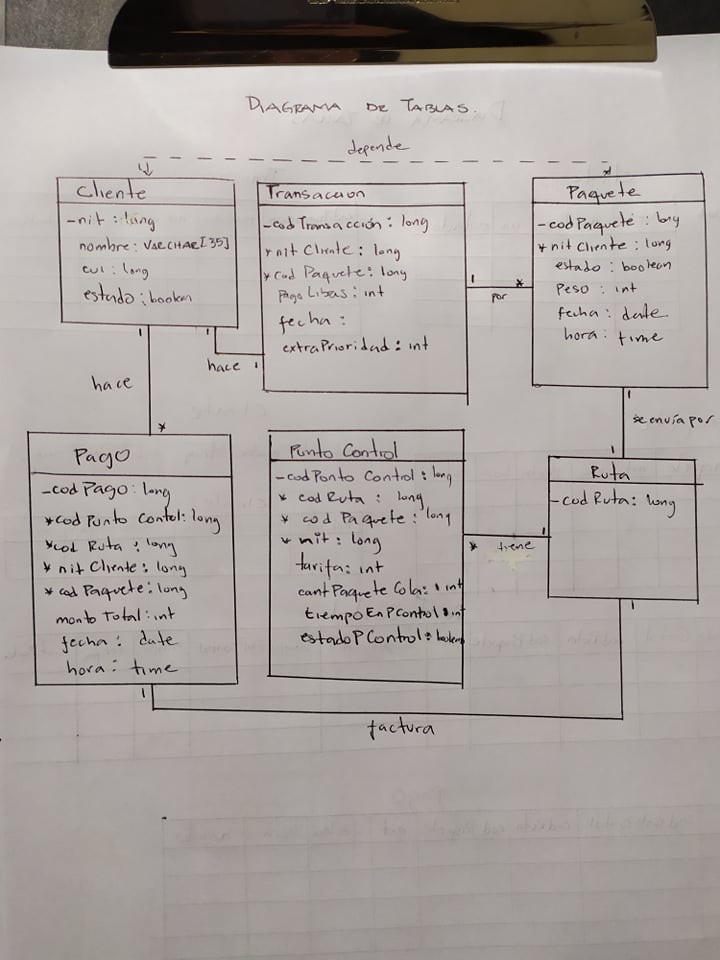 DIAGRAMA DE TABLAS.
depende
Cliente
-nit : long
nombre : VARCHAR[35]
cui : long
estado : boolean
Transaccion
-cod Transacción : long
* nit Cliente : long
* Cod Paquete : long
Pago Libas : int
fecha :
extra Prioridad : int
Paquete
-cod Paquete : long
* nit Cliente : long
estado : boolean
Peso : int
fecha : date
hora : time
1
*
por
1
hace
1
1
hace
*
1
se envía por
1
Pago
-cod Pago : long
*cod Punto Contol : long
*cod Ruta : long
* nit Cliente : long
* cod Paquete : long
monto Total : int
fecha : date
hora : time
Punto Control
-cod Ponto Control : long
* cod Ruta : long
* cod Paquete : long
* nit : long
tarifa : int
cant Paquete Cola : int
tiempo En P Control : int
estado P Control : boolean
Ruta
-cod Ruta : long
*
tiene
1
1
1
factura